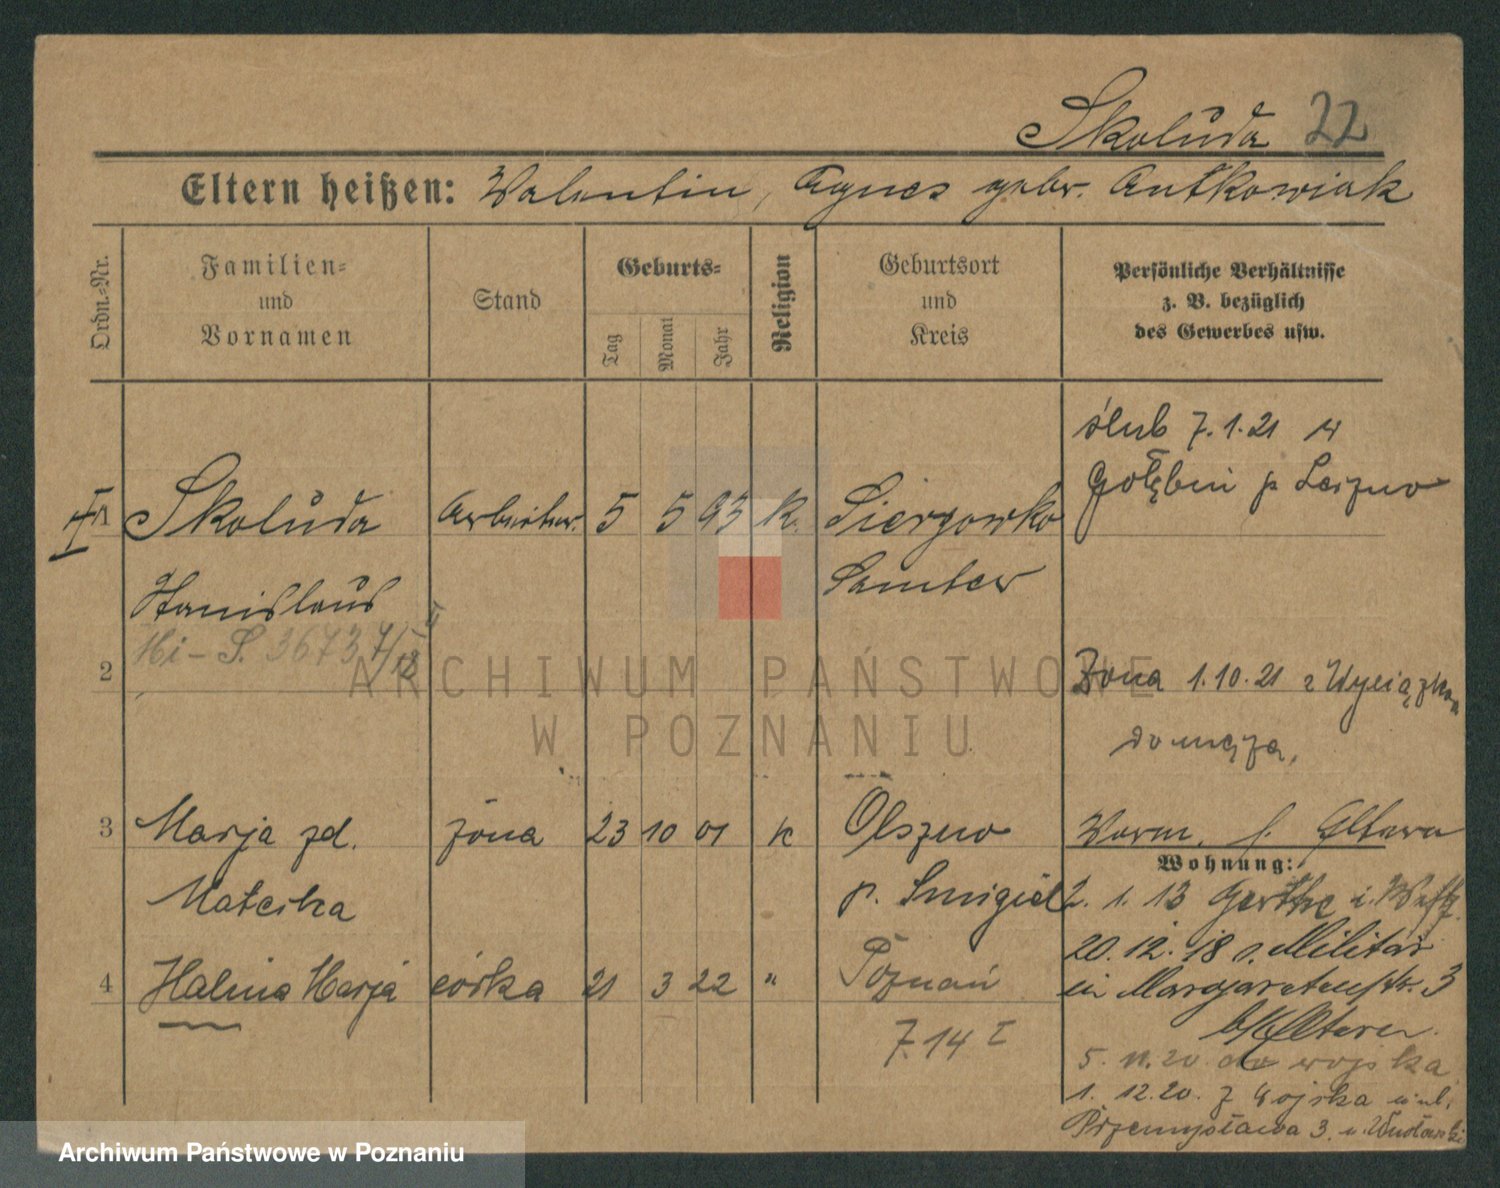 Skoluda 22
Eltern heißen: Valentin, Agnes gebr. Antkowiak
Ordn.=Nr.
Familien=
und
Vornamen
Stand
Geburts=
Tag
Monat
Jahr
Religion
Geburtsort
und
Kreis
Persönliche Verhältnisse
z. B. bezüglich
des Gewerbes usw.
ślub 7.1.21 w
Gołębin p Leszno
1 Skoluda Arbeiter 5 5 93 K. Sierpowko
Stanislaus Samter
Hi - S. 3673
2
Żona 1.10.21 z Wyciązkom
do męża,
3 Marja zd. żona 23 10 01 k Olszewo
Mateska p. Smigiel
Vorm. s. Eltern
Wohnung:
2. 1. 13 Gerthe i. Westf.
20. 12. 18 v. Militär
in Margaretenstr. 3
b/Eltern.
4 Halina Marja córka 21 3 22 " Poznań
7.14 I
5. 11. 20 do wojska
1. 12. 20. z wojska w ul.
Przemysława 3. u
ARCHIWUM PAŃSTWOWE
W POZNANIU
Archiwum Państwowe w Poznaniu